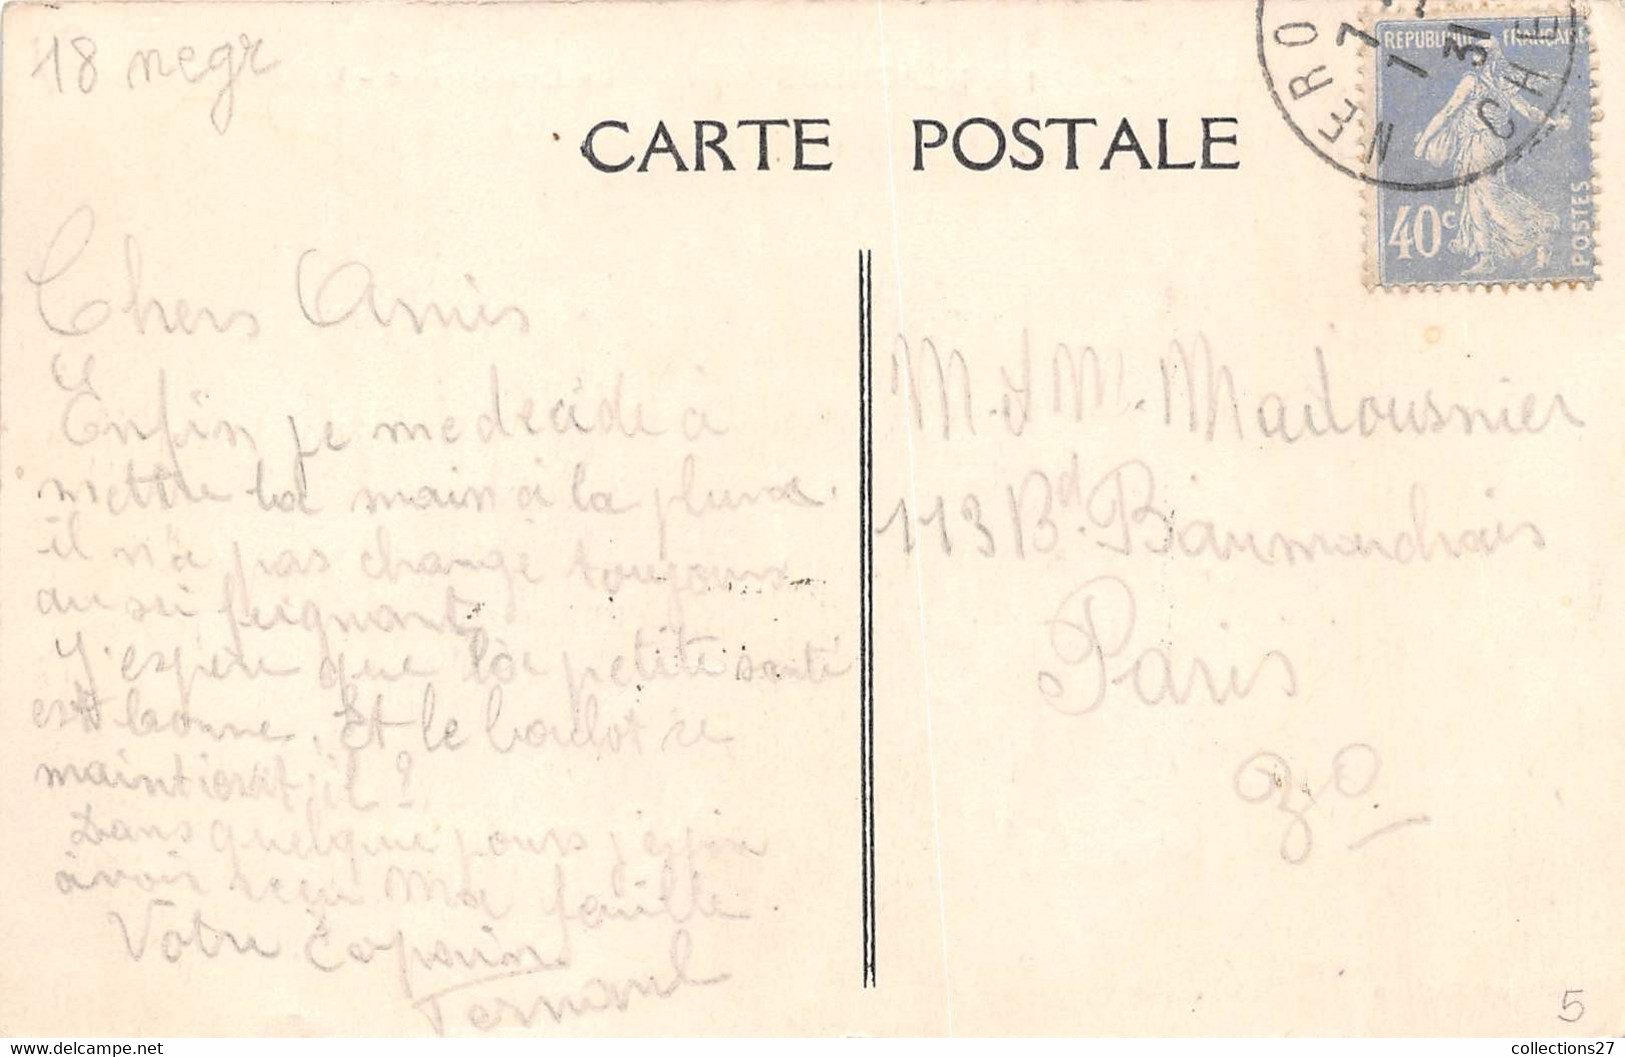 18 negr
CARTE POSTALE
NERO CHE
7
1
31
REPUBLIQUE FRANCAISE
40c
POSTES
Chers Amis
Enfin je me decide à
mettre la main à la plume.
il n'a pas change toujours
aussi feignant
J'espère que la petite santé
est bonne. Et le boulot se
maintient il ?
Dans quelque jours j'espère
avoir reçu ma feuille.
Votre Copain
Fernand
M. & Mme Madousnier
113 Bd. Baumarchais
Paris
5
collections27